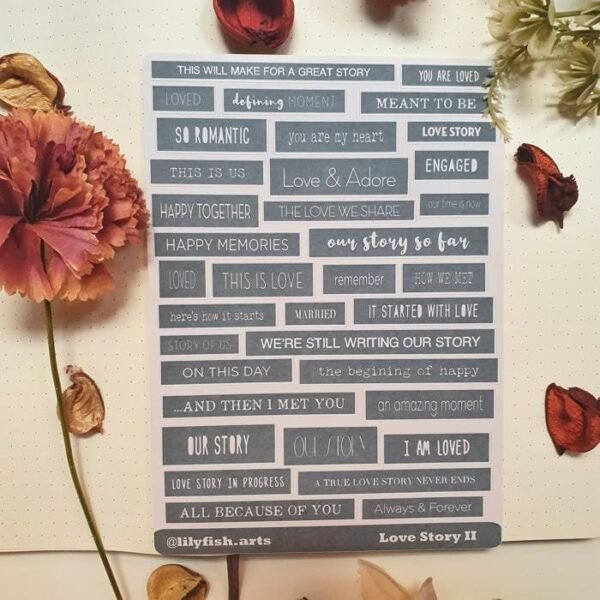 THIS WILL MAKE FOR A GREAT STORY
YOU ARE LOVED
LOVED
defining MOMENT
MEANT TO BE
SO ROMANTIC
you are my heart
LOVE STORY
THIS IS US
Love & Adore
ENGAGED
HAPPY TOGETHER
THE LOVE WE SHARE
our time is now
HAPPY MEMORIES
our story so far
LOVED
THIS IS LOVE
remember
HOW WE MET
here's how it starts
MARRIED
IT STARTED WITH LOVE
STORY OF US
WE'RE STILL WRITING OUR STORY
ON THIS DAY
the begining of happy
...AND THEN I MET YOU
an amazing moment
OUR STORY
OUR STORY
I AM LOVED
LOVE STORY IN PROGRESS
A TRUE LOVE STORY NEVER ENDS
ALL BECAUSE OF YOU
Always & Forever
@lilyfish.arts
Love Story II